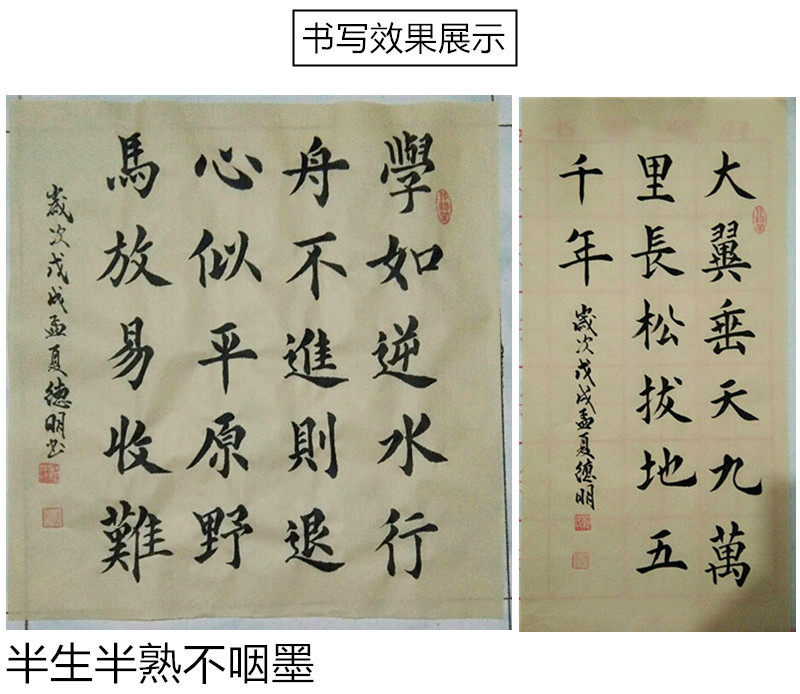 书写效果展示
學如逆水行
舟不進則退
心似平原野
馬放易收難
歲次戊戌孟夏德明书
大翼垂天九萬
里長松拔地五
千年
歲次戊戌孟夏德明
半生半熟不咽墨